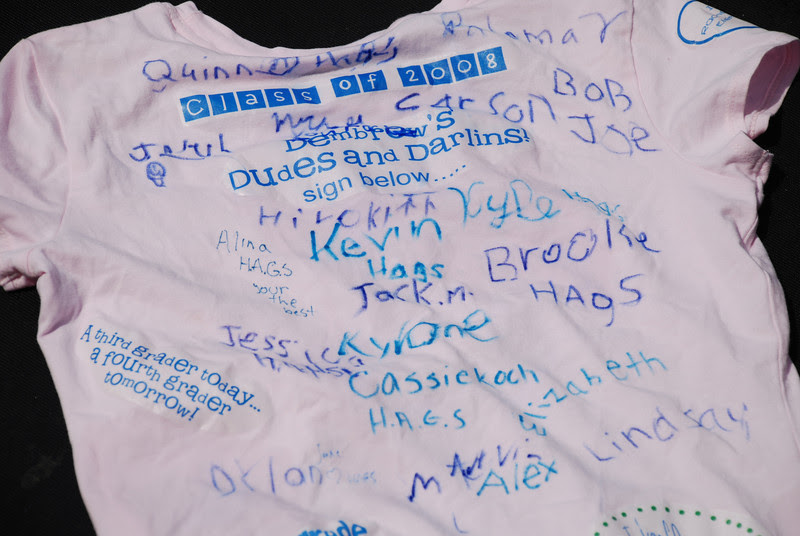 Palomar
Quinn
Class of 2008
BOB
Carson
Joe
Dembrow's
Dudes and Darlins!
sign below.....
Kyle
Kevin
Hags
Alina
H.A.G.S
your
the
best
Brooke
HAGS
Jack.m.
Jessica
Kyrone
A third grader today...
a fourth grader
tomorrow!
Cassie koch
H.A.G.S
Elizabeth
Lindsay
Dylan
Alex